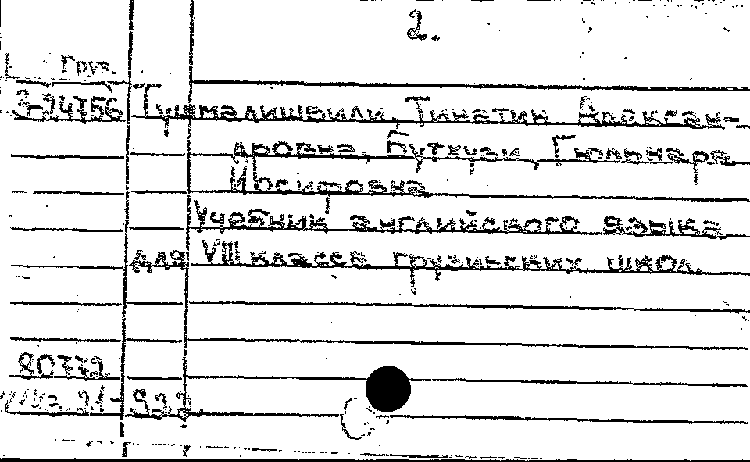 2.
Груз.
3-24756 Тушмалишвили, Тинатин Алексан-
дровна, Бутхузи, Гюльнара
Иосифовна
Учебник английского языка
для VIII класса грузинских школ.
80772
21-922